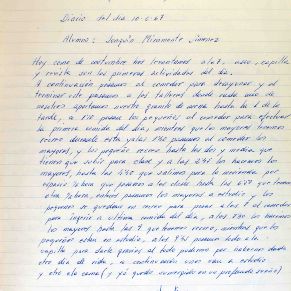 Diario del dia 10-6-67
Alumno: Joaquín Miramonte Jimenez
Hoy como de costumbre nos levantamos a la 7, aseo, capilla
y revista son las primeras actividades del dia.
A continuación pasamos al comedor para desayunar y al
terminar este pasamos a los talleres donde cada uno de
nosotros aportamos nuestro granito de arena hasta la 1 de la
tarde, a 130 pasan los pequeños al comedor para efectuar
la primera comida del dia, mientras que los mayores tenemos
recreo durante esta y a las 240 pasamos al comedor los
mayores, y los pequeños recreo, hasta las dos y media, que
tienen que subir para clase y a las 245 lo hacemos los
mayores, hasta las 440 que salimos para la merienda, por
espacio ½ hora que pasamos a las clases hasta las 6 que tenemos
otra ½ hora, entran pasamos los mayores a estudio, los
pequeños se quedan en recreo para pasar a las 7 al comedor
para ingerir la ultima comida del dia, a las 730 lo hacemos
los mayores hasta las 8 que tenemos recreo, mientras que los
pequeños estan en estudio, a las 845 pasamos todos a la
capilla para darle gracias al todo poderoso por habernos dado
otro dia de vida, a continuación unos van a estudio
y otro a la cama (y yo quedo sumergido en un profundo sueño)